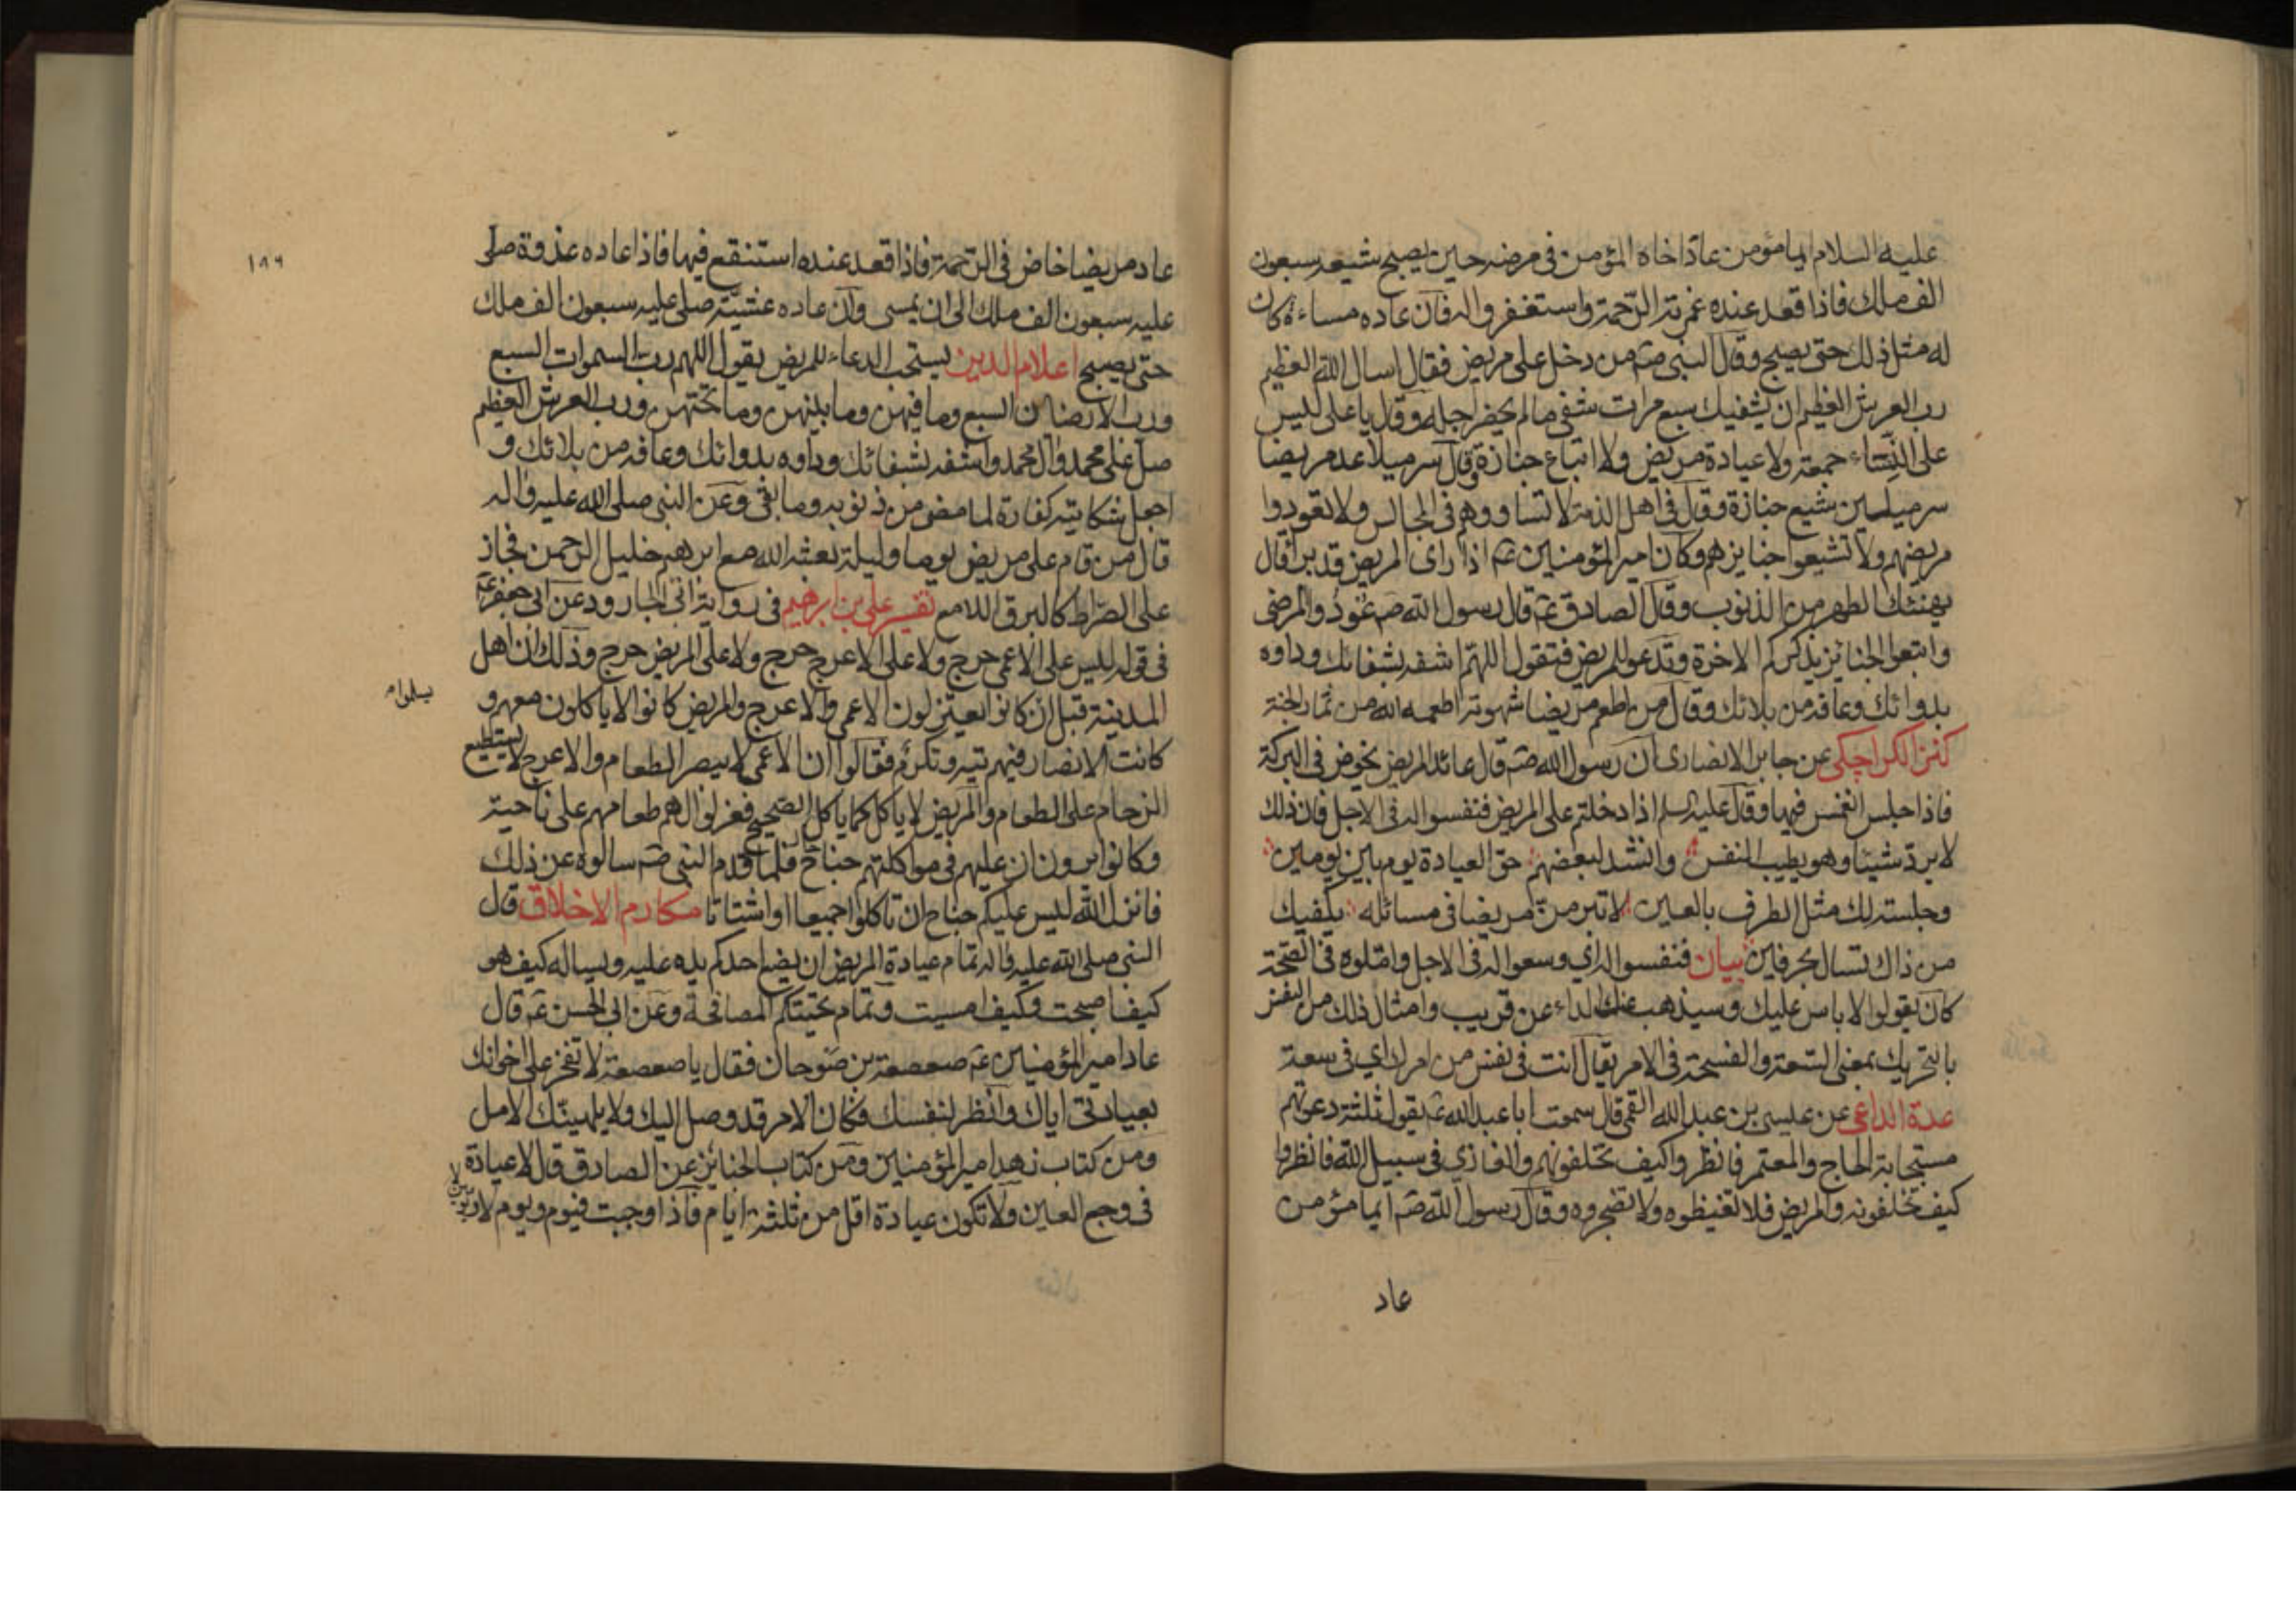 عليه السلام ايما مؤمن عاد اخاه المؤمن في مرضه حين يصبح شيعه سبعون
الف ملك فاذا قعد عنده غمرته الرحمة واستغفروا له فان عاده مساء كان
له مثل ذلك حتى يصبح وقال النبي صم من دخل على مريض فقال اسال الله العظيم
رب العرش العظيم ان يشفيك سبع مرات شفي ما لم يحضر اجله وقال يا علي ليس
على النساء جمعة ولا عيادة مريض ولا اتباع جنازة وقال سر ميلا عد مريضا
سر ميلين شيع جنازة وقال في اهل الذمة لا تساووهم في المجالس ولا تعودوا
مريضهم ولا تشيعوا جنايزهم وكان امير المؤمنين عم اذا راى المريض قد برا قال
يهنئك الطهر من الذنوب وقال الصادق عم قال رسول الله صم عودوا المرضى
واتبعوا الجنائز يذكركم الاخرة وتدعو للمريض فتقول اللهم اشفه بشفائك وداوه
بدوائك وعافه من بلائك وقال من اطعم مريضا شهوته اطعمه الله من ثمار الجنة
كنز الكراجكي عن جابر الانصاري ان رسول الله صم قال عائد المريض يخوض في البركة
فاذا جلس انغمس فيها وقال عليه السلم اذا دخلتم على المريض فنفسوا له في الاجل فان ذلك
لا يرد شيئا وهو يطيب النفس وانشد لبعضهم حق العيادة يوم بين يومين
وجلسة لك مثل الطرف بالعين لا تبرمن مريضا في مسائله يكفيك
من ذاك تسال بحرفين بيان فنفسوا له اي وسعوا له في الاجل واملوه في الصحة
كان يقولوا لا باس عليك وسيذهب عنك الداء عن قريب وامثال ذلك من النفس
بالتحريك بمعنى السعة والفسحة في الامر يقال انت في نفس من امرك اي في سعة
عدة الداعي عن عيسى بن عبد الله القمي قال سمعت ابا عبد الله عم يقول ثلثة دعوتهم
مستجابة الحاج والمعتمر فانظروا كيف تخلفونهم والغازي في سبيل الله فانظروا
كيف تخلفونه والمريض فلا تغيظوه ولا تضجروه وقال رسول الله صم ايما مؤمن
عاد
١٨٩
عاد مريضا خاض في الرحمة فاذا قعد عنده استنقع فيها فاذا عاده غدوة صلى
عليه سبعون الف ملك الى ان يمسي وان عاده عشية صلى عليه سبعون الف ملك
حتى يصبح اعلام الدين يستحب الدعاء للمريض يقول اللهم رب السموات السبع
ورب الارضين السبع وما فيهن وما بينهن وما تحتهن ورب العرش العظيم
صل على محمد وآل محمد واشفه بشفائك وداوه بدوائك وعافه من بلائك و
اجعل شكايته كفارة لما مضى من ذنوبه وما بقي وعن النبي صلى الله عليه وآله
قال من قام على مريض يوما وليلة بعثه الله مع ابرهيم خليل الرحمن فجاز
على الصراط كالبرق اللامع تفسير علي بن ابرهيم في رواية ابي الجارود عن ابي جعفر عم
في قوله ليس على الاعمى حرج ولا على الاعرج حرج ولا على المريض حرج وذلك ان اهل
المدينة قبل ان يسلموا م كانوا يعتزلون الاعمى والاعرج والمريض كانوا لا ياكلون معهم و
كانت الانصار فيهم تيه وتكرم فقالوا ان الاعمى لا يبصر الطعام والاعرج لا يستطيع
الزحام على الطعام والمريض لا ياكل كما ياكل الصحيح فعزلوا لهم طعامهم على ناحية
وكانوا يرون ان عليهم في مواكلتهم جناح فلما قدم النبي صم سالوه عن ذلك
فانزل الله ليس عليكم جناح ان تاكلوا جميعا او اشتاتا مكارم الاخلاق قال
النبي صلى الله عليه وآله تمام عيادة المريض ان يضع احدكم يده عليه ويساله كيف هو
كيف اصبحت وكيف امسيت وتمام تحيتكم المصافحة وعن ابي الحسن عم قال
عاد امير المؤمنين عم صعصعة بن صوحان فقال يا صعصعة لا تفخر على اخوانك
بعيادتي اياك وانظر لنفسك فكان الامر قد وصل اليك ولا يلهينك الامل
ومن كتاب زهد امير المؤمنين ومن كتاب الجنائز عن الصادق قال لا عيادة
في وجع العين ولا تكون عيادة اقل من ثلثة ايام فاذا وجبت فيوم ويوم لا